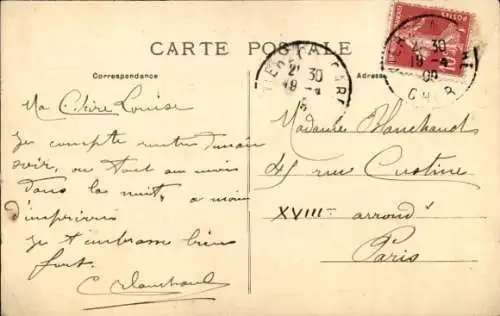 CARTE POSTALE
Correspondance
Adresse
2 30
19 -4
09
CHER
2 30
19 -4
Ma Chère Louise
Je compte rentrer demain
soir, ou tout au moins
dans la nuit, à moins
d'imprévus
Je t'embrasse bien
fort.
C Blanchaud
Madame Blanchaud
45 rue Custine
XVIII arrondt
Paris